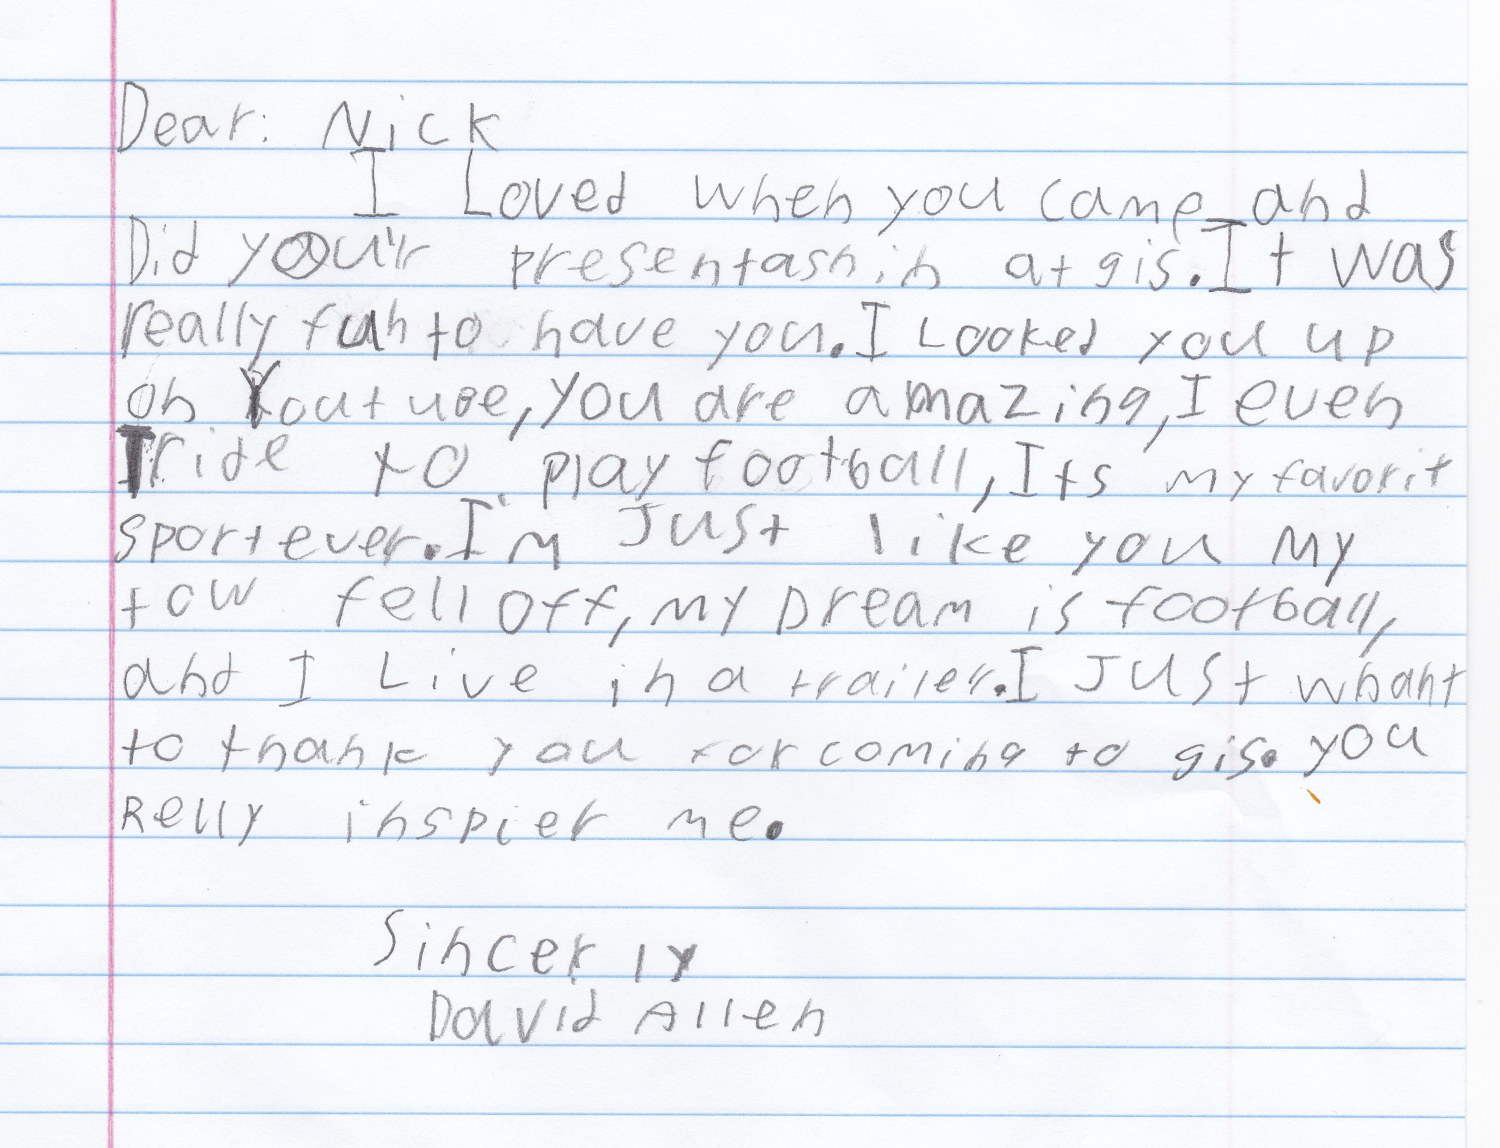 Dear: Nick
I Loved when you came and
Did you'r presentashin at gis. It was
really fun to have you. I Looked you up
on Youtube, you are amazing, I even
Tride to play football, Its my favorit
sport ever. I'm Just like you my
tow fell off, my Dream is football,
and I Live in a trailer. I Just whant
to thank you for coming to gis. you
Relly inspier me.
Sincerly
David Allen